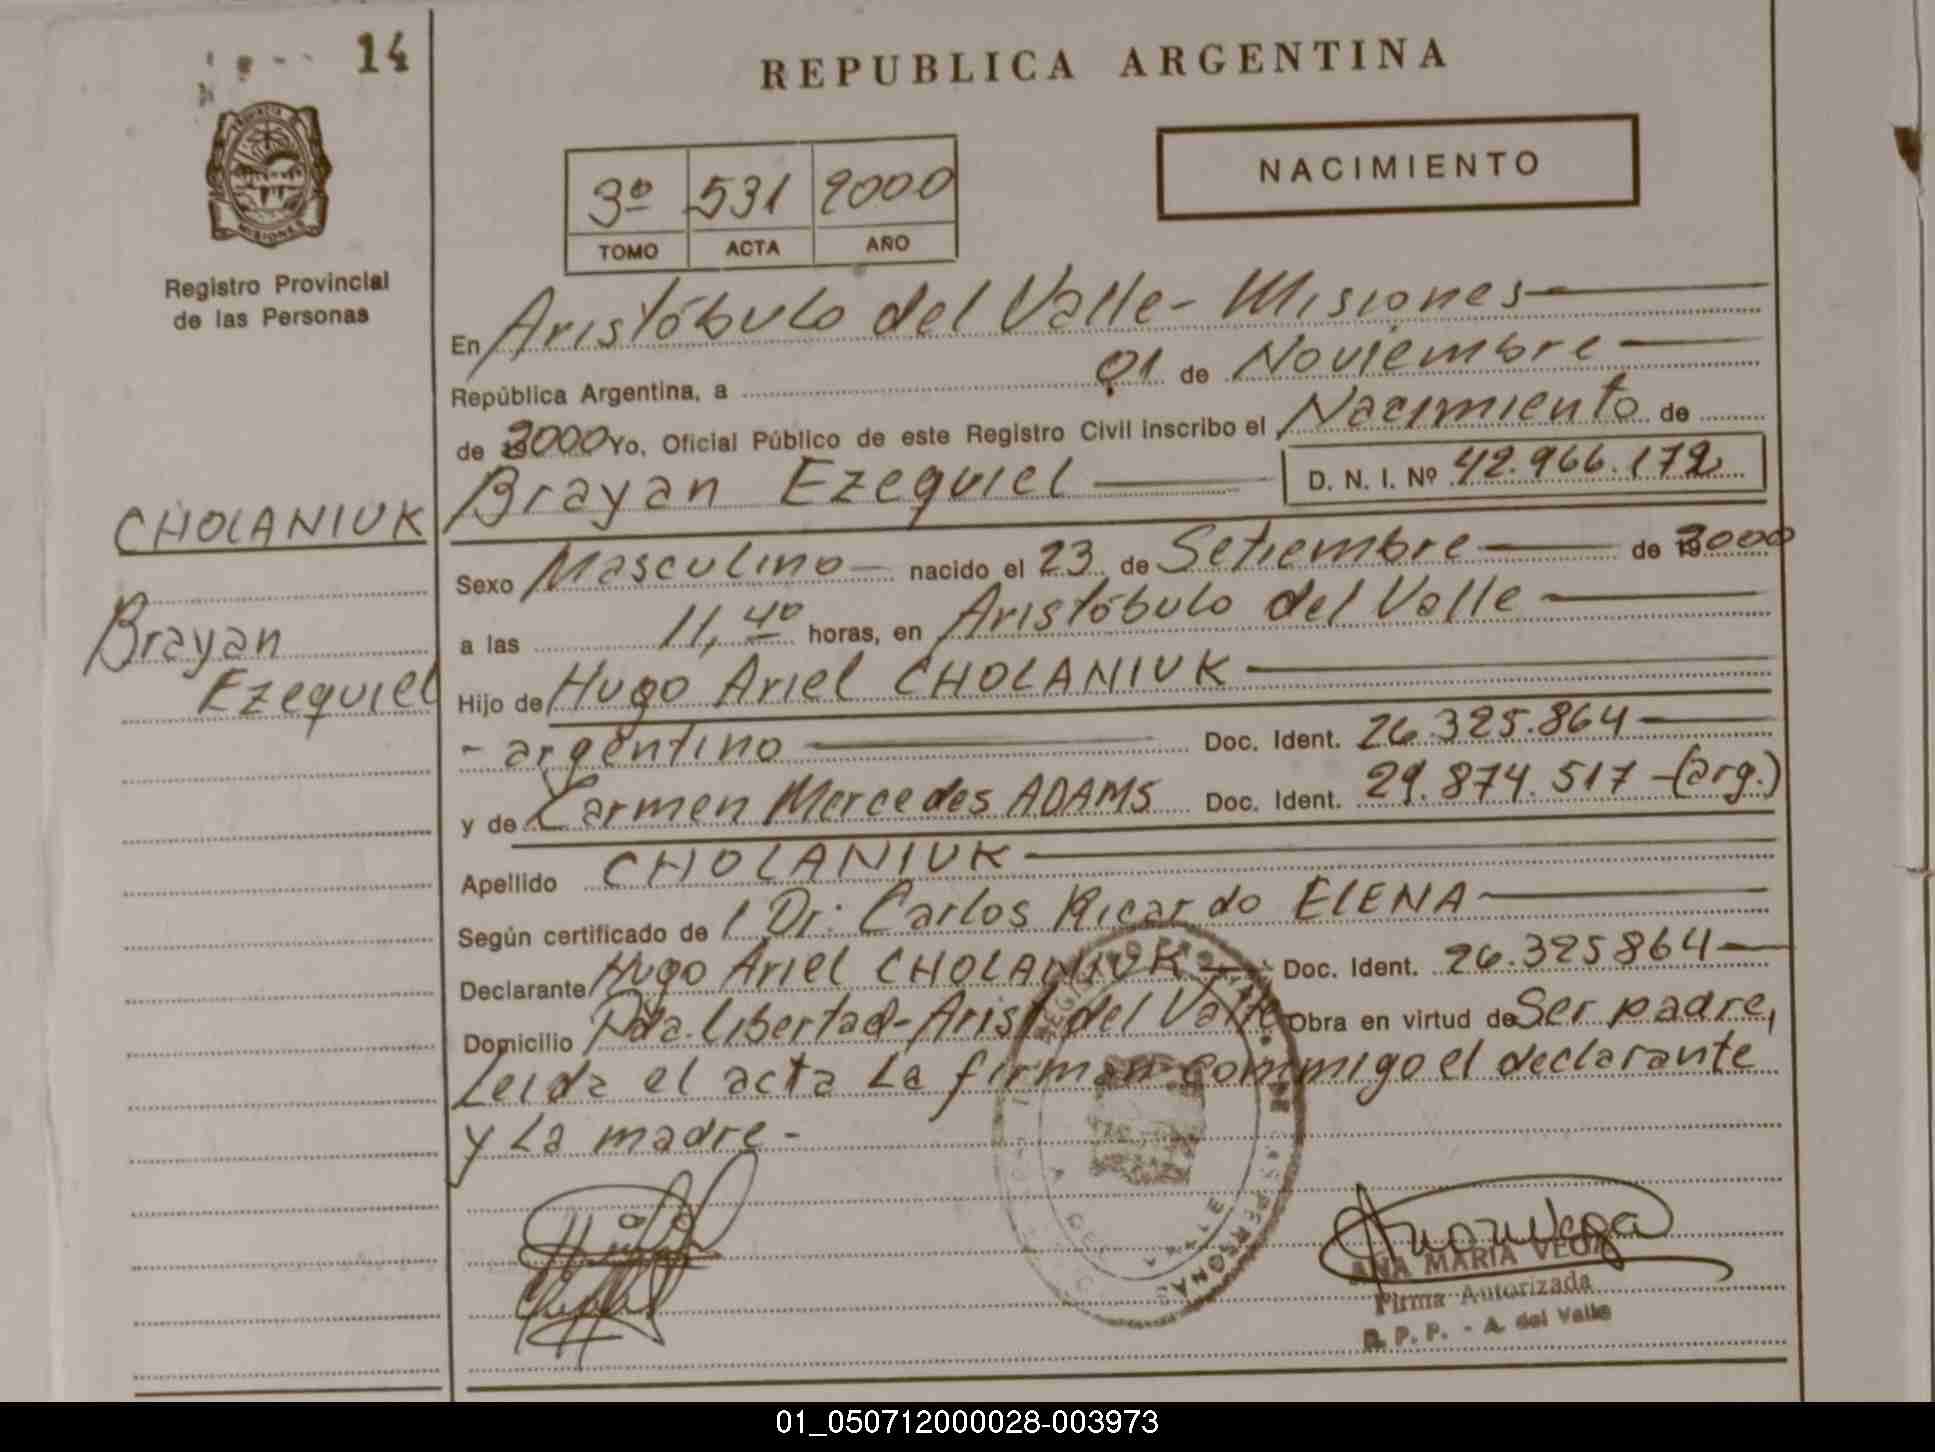 14
REPUBLICA ARGENTINA
NACIMIENTO
3º 531 2000
TOMO ACTA AÑO
PROVINCIA
MISIONES
Registro Provincial
de las Personas
CHOLANIUK
Brayan
Ezequiel
En Aristóbulo del Valle - Misiones
República Argentina, a 01 de Noviembre
de 2000 Yo, Oficial Público de este Registro Civil inscribo el Nacimiento de
Brayan Ezequiel D. N. I. Nº 42.966.172
Sexo Masculino nacido el 23 de Setiembre de 2000
a las 11,40 horas, en Aristóbulo del Valle
Hijo de Hugo Ariel CHOLANIUK
- argentino Doc. Ident. 26.325.864
y de Carmen Mercedes ADAMS Doc. Ident. 29.874.517 - (arg.)
Apellido CHOLANIUK
Según certificado de Dr. Carlos Ricardo ELENA
Declarante Hugo Ariel CHOLANIUK Doc. Ident. 26.325864
Domicilio Pda. Libertad - Arist del Valle Obra en virtud de Ser padre,
Leida el acta La firman conmigo el declarante
y La madre -
ANA MARIA VEGA
Firma Autorizada
R. P. P. - A. del Valle
01_050712000028-003973